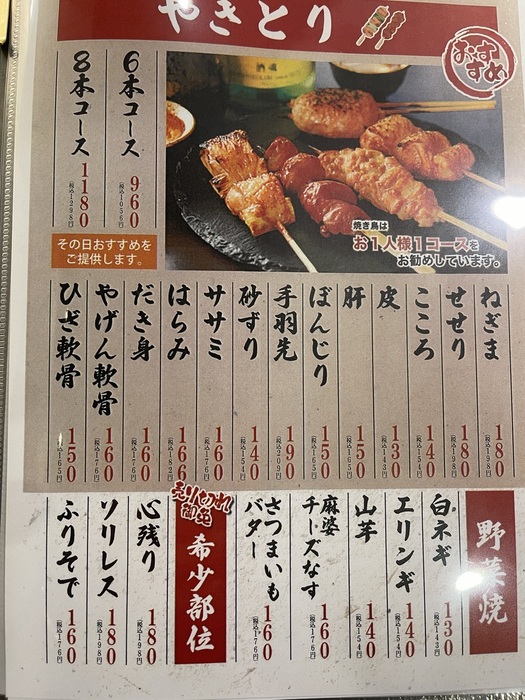 やきとり
おすすめ
6本コース 960
(税込1056円)
8本コース 1180
(税込1298円)
その日おすすめを
ご提供します。
焼き鳥は
お1人様1コースを
お勧めしています。
ねぎま 180
(税込198円)
せせり 180
(税込198円)
こころ 140
(税込154円)
皮 130
(税込143円)
肝 150
(税込165円)
ぼんじり 150
(税込165円)
手羽先 190
(税込209円)
砂ずり 140
(税込154円)
ササミ 160
(税込176円)
はらみ 166
(税込182円)
だき身 160
(税込176円)
やげん軟骨 160
(税込176円)
ひざ軟骨 150
(税込165円)
野菜焼
白ネギ 130
(税込143円)
エリンギ 140
(税込154円)
山芋 140
(税込154円)
麻婆
チーズなす 160
(税込176円)
さつまいも
バター 160
(税込176円)
売り切れ
御免
希少部位
心残り 180
(税込198円)
ソリレス 180
(税込198円)
ふりそで 160
(税込176円)